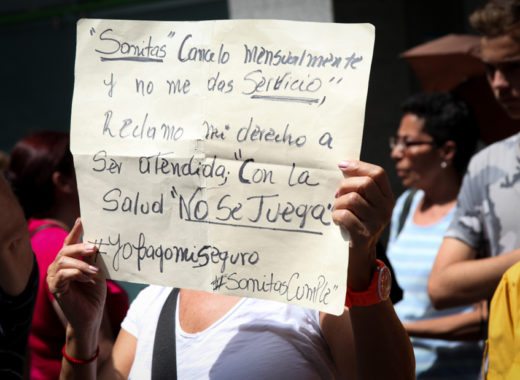 "Sanitas" Cancelo mensualmente
y no me das Servicio",
Reclamo mi derecho a
Ser atendida; "Con la
Salud "No Se Juega"
#Yopagomiseguro
#SanitasCumple